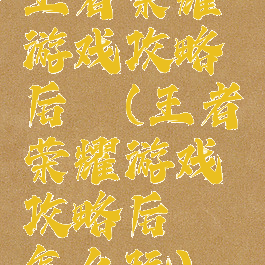 王者荣耀
游戏攻略
后 (王者
荣耀游戏
攻略后
怎么玩)